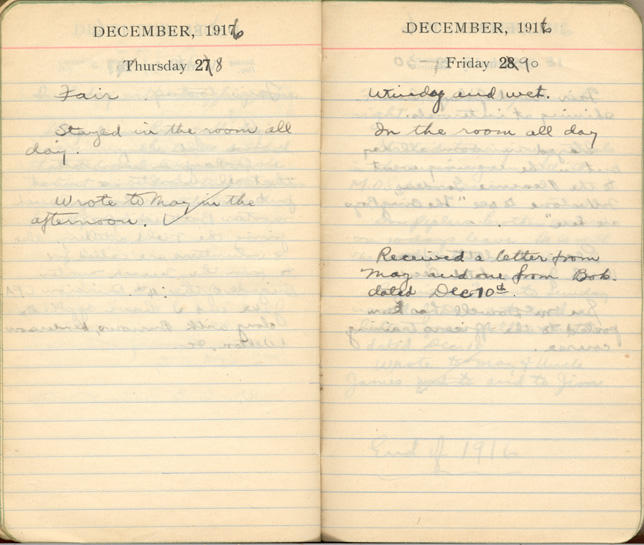 DECEMBER, 1916
Thursday 28
Fair
Stayed in the room all
day.
Wrote to May in the
afternoon. ✓
DECEMBER, 1916
Friday 29
Windy and wet.
In the room all day
Received a letter from
May and one from Bob.
dated Dec 10th.
Wrote to May & Uncle
James and to Jim
End of 1916